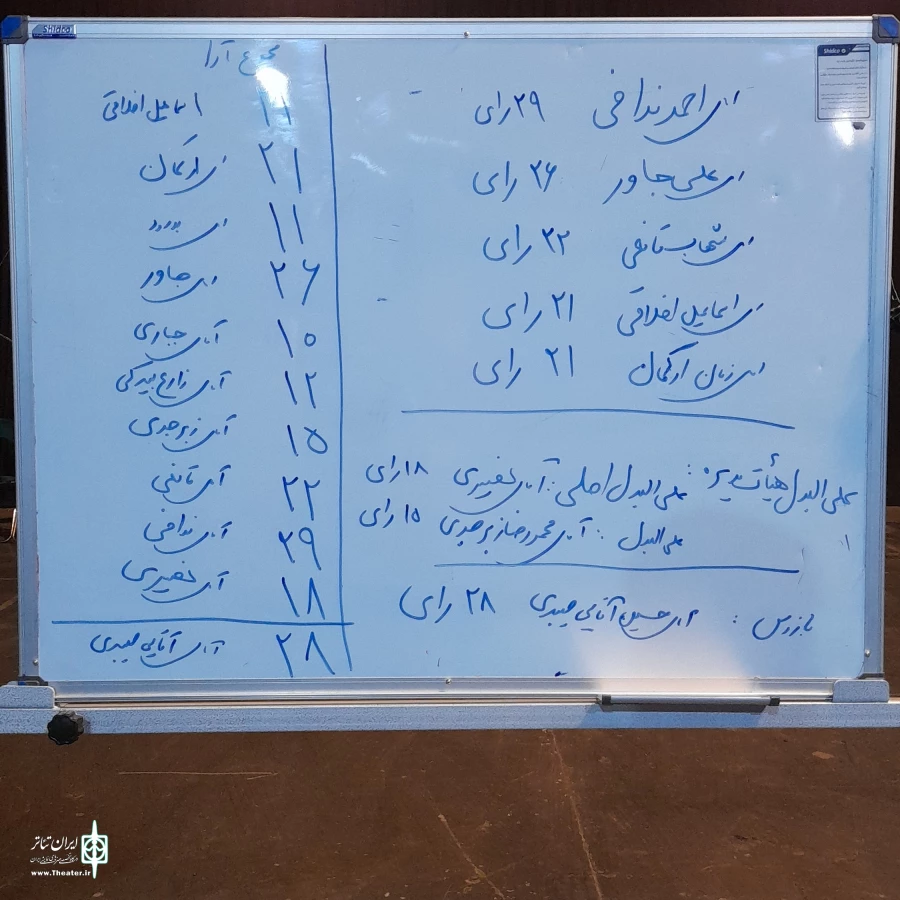 Shidco
مجموع آرا
آقای احمد ندافی ۲۹ رای
آقای علی جاور ۲۶ رای
آقای شهاب ستانفی ۲۲ رای
آقای اسماعیل افلاقی ۲۱ رای
آقای زمان ارکمان ۲۱ رای
علی البدل هیأت مدیره: علی البدل اصلی: آقای نصیری ۱۸ رای
علی البدل: آقای محمدرضا زبرجدی ۱۵ رای
بازرس: آقای حسین آقایی میبدی ۲۸ رای
۱۱ اسماعیل افلاقی
۲۱ آقای ارکمان
۱۱ آقای
۲۶ آقای جاور
۱۰ آقای جباری
۱۲ آقای زارع بیدکی
۱۵ آقای زبرجدی
۲۲ آقای
۲۹ آقای ندافی
۱۸ آقای نصیری
۲۸ آقای آقایی میبدی
ایران تئاتر
www.Theater.ir